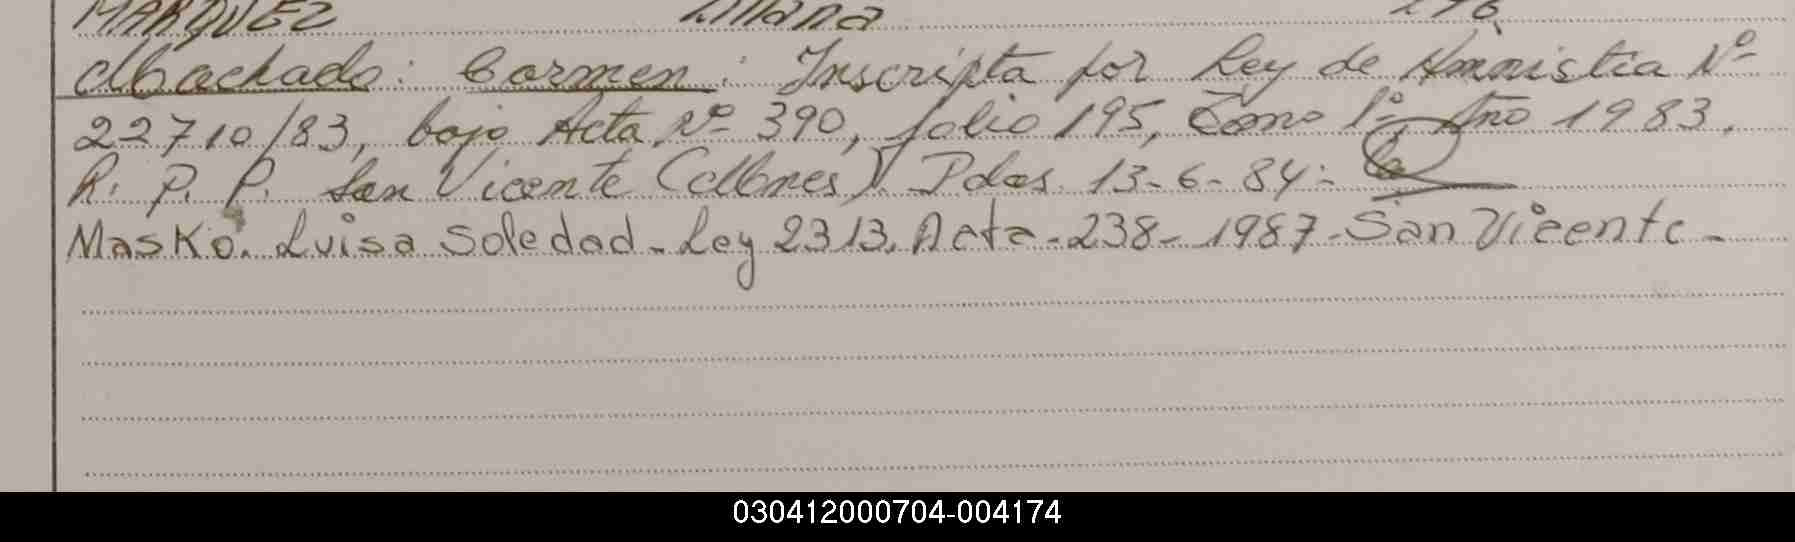 MARQUEZ Liliana 196
Machado: Carmen: Inscripta por Ley de Amnistia Nº
22710/83, bajo Acta Nº 390, folio 195, Tomo 1º, Año 1983.
R. P. P. San Vicente (Mnes) Pdas. 13-6-84:-
Masko. Luisa Soledad - Ley 2313. Acta - 238 - 1987 - San Vicente -
030412000704-004174